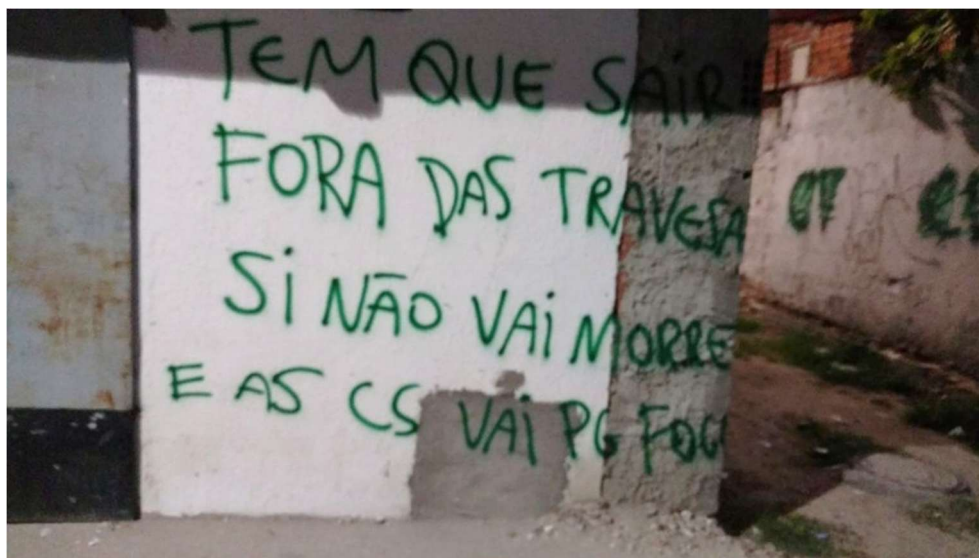 TEM QUE SAIR!!
FORA DAS TRAVESA
SI NÃO VAI MORRE
E AS CS VAI PG FOGO